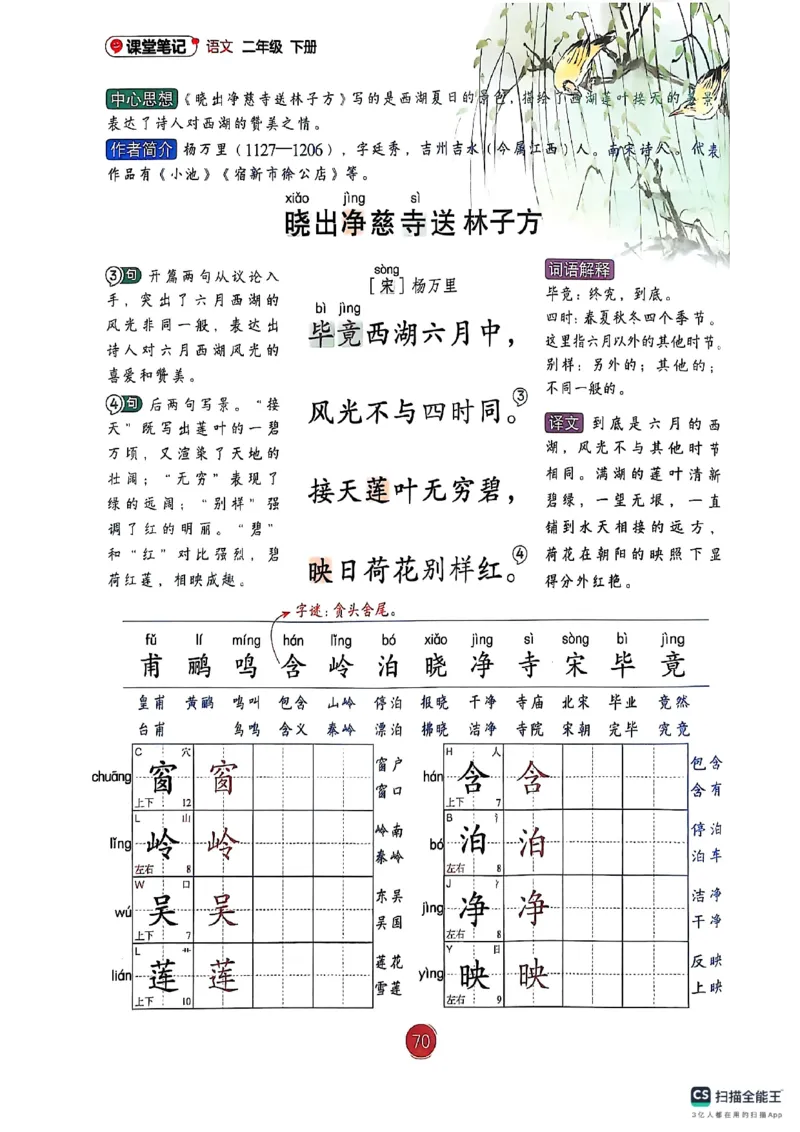 课堂笔记 语文 二年级 下册
中心思想 《晓出净慈寺送林子方》写的是西湖夏日的景色，描绘了西湖莲叶接天的美景，
表达了诗人对西湖的赞美之情。
作者简介 杨万里（1127—1206），字廷秀，吉州吉水（今属江西）人。南宋诗人。代表
作品有《小池》《宿新市徐公店》等。
xiǎo jìng sì
晓出净慈寺送林子方
sòng
［宋］杨万里
bì jìng
毕竟西湖六月中，
风光不与四时同。③
接天莲叶无穷碧，
映日荷花别样红。④
③句 开篇两句从议论入
手，突出了六月西湖的
风光非同一般，表达出
诗人对六月西湖风光的
喜爱和赞美。
④句 后两句写景。“接
天”既写出莲叶的一碧
万顷，又渲染了天地的
壮阔；“无穷”表现了
绿的远阔；“别样”强
调了红的明丽。“碧”
和“红”对比强烈，碧
荷红莲，相映成趣。
词语解释
毕竟：终究，到底。
四时：春夏秋冬四个季节。
这里指六月以外的其他时节。
别样：另外的；其他的；
不同一般的。
译文 到底是六月的西
湖，风光不与其他时节
相同。满湖的莲叶清新
碧绿，一望无垠，一直
铺到水天相接的远方，
荷花在朝阳的映照下显
得分外红艳。
字谜：贪头含尾。
fǔ lí míng hán lǐng bó xiǎo jìng sì sòng bì jìng
甫 鹂 鸣 含 岭 泊 晓 净 寺 宋 毕 竟
皇甫 黄鹂 鸣叫 包含 山岭 停泊 报晓 干净 寺庙 北宋 毕业 竟然
台甫 鸟鸣 含义 秦岭 漂泊 拂晓 洁净 寺院 宋朝 完毕 究竟
C 穴
chuāng 窗 窗 窗户
上下 12 窗口
L 山
lǐng 岭 岭 岭南
左右 8 秦岭
W 口
wú 吴 吴 东吴
上下 7 吴国
L 艹
lián 莲 莲 莲花
上下 10 雪莲
H 人
hán 含 含 包含
上下 7 含有
B 氵
bó 泊 泊 停泊
左右 8 泊车
J 冫
jìng 净 净 洁净
左右 8 干净
Y 日
yìng 映 映 反映
左右 9 上映
70
CS 扫描全能王
3亿人都在用的扫描App